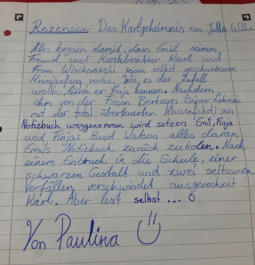 Rezension: Das Karlgeheimnis von Jutta Wilke
Alles begann damit, dass Emil seinem
Freund und Kioskbesitzer Karl und
Frau Wischnewski seine selbst geschriebenen
Krimianfang vorlas. Wie es der Zufall
wollte, lernte er Finja kennen. Nachdem
ihm von der Fiesen Bertram (seiner Lehrerin
mit der total überteuerten Klassenfahrt) sein
Notizbuch weggenommen wird setzen Emil, Finja
und Finjas Hund Watson alles daran
Emils Notizbuch zurück zu holen. Nach
einem Einbruch in die Schule, einer
schwarzen Gestalt und zwei seltsamen
Vorfällen verschwindet ausgerechnet
Karl. Aber lest selbst...
Von Paulina